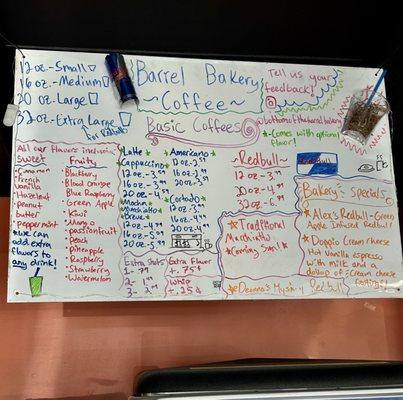 12 oz.-Small
16 oz.-Medium
20 oz. Large
32 oz.-Extra Large
for Redbulls
Barrel Bakery
~Coffee~
Tell us your
feedback!
@bottom of the barrel bakery
Basic Coffees
*-Comes with optional
flavor!
All our flavors including
Sweet
-Cinnamon
-French
Vanilla
-Hazelnut
-Peanut
butter
-Peppermint
*we can
add extra
flavors to
any drink!
Fruity
-Blackberry
-Blood Orange
-Blue Raspberry
-Green Apple
-Kiwi
-Mango
-passionfruit
-Peach
-Pineapple
-Raspberry
-Strawberry
-Watermelon
Latte *
Cappuccino
12 oz.-3
16 oz.-3
20 oz.-
Mocha
Macchiatto
Breve
12 oz.-4
16 oz.-4
20 oz.-5
Americano *
12 oz.-3
16 oz.-3
20 oz.-
Cortado
12 oz.-3
16 oz.-4
20 oz.-5
Extra Shots
1-.79
2-1
3-2
Extra Flavor
+.75¢
Whip
+.25¢
~Redbull~
12 oz.-3
20 oz.-4
32 oz.-6
*Traditional
Macchiatto
*Coming Soon!*
Redbull
Bakery Specials
*Alex's Redbull-Green
Apple Infused Redbull
*Doppio Cream Cheese
Hot Vanilla espresso
with milk and a
dollop of cream cheese
frosting!
*Deanna's Mystery Redbull